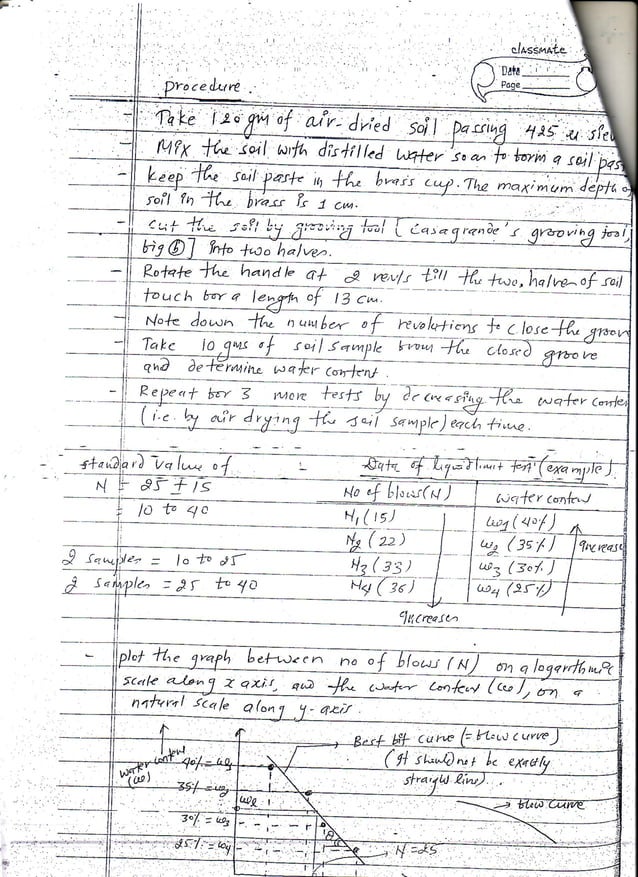 classmate
Date
Page
procedure.
- Take 120 gm of air-dried soil passing 425 u siev
- Mix the soil with distilled water so as to form a soil pas
- keep the soil paste in the brass cup. The maximum depth o
soil in the brass is 1 cm.
- cut the soil by grooving tool [casagrande's grooving tool,
big (b)] into two halves.
- Rotate the handle at 2 rev/s till the two, halves of soil
touch for a length of 13 cm.
- Note down the number of revolutions to close the groov
- Take 10 gms of soil sample from the closed groove
and determine water content.
- Repeat for 3 more tests by decreasing the water conten
(i.e. by air drying the soil sample) each time.
- standard value of :- Data of liquid limit test (example)
N = 25 ± 15 No of blows (N) water content
= 10 to 40 N1 (15) w1 (40%)
N2 (22) w2 (35%) increase
2 samples = 10 to 25 N3 (33) w3 (30%)
2 samples = 25 to 40 N4 (36) w4 (25%)
increases
- plot the graph between no of blows (N) on a logarithmic
scale along x axis, and the water content (w), on a
natural scale along y-axis.
Best fit curve (= flow curve)
(It should not be exactly
straight line).
water content
(w)
40% = w
35% = w2
wl
30% = w3
25% = w4
θ
N = 25
flow curve